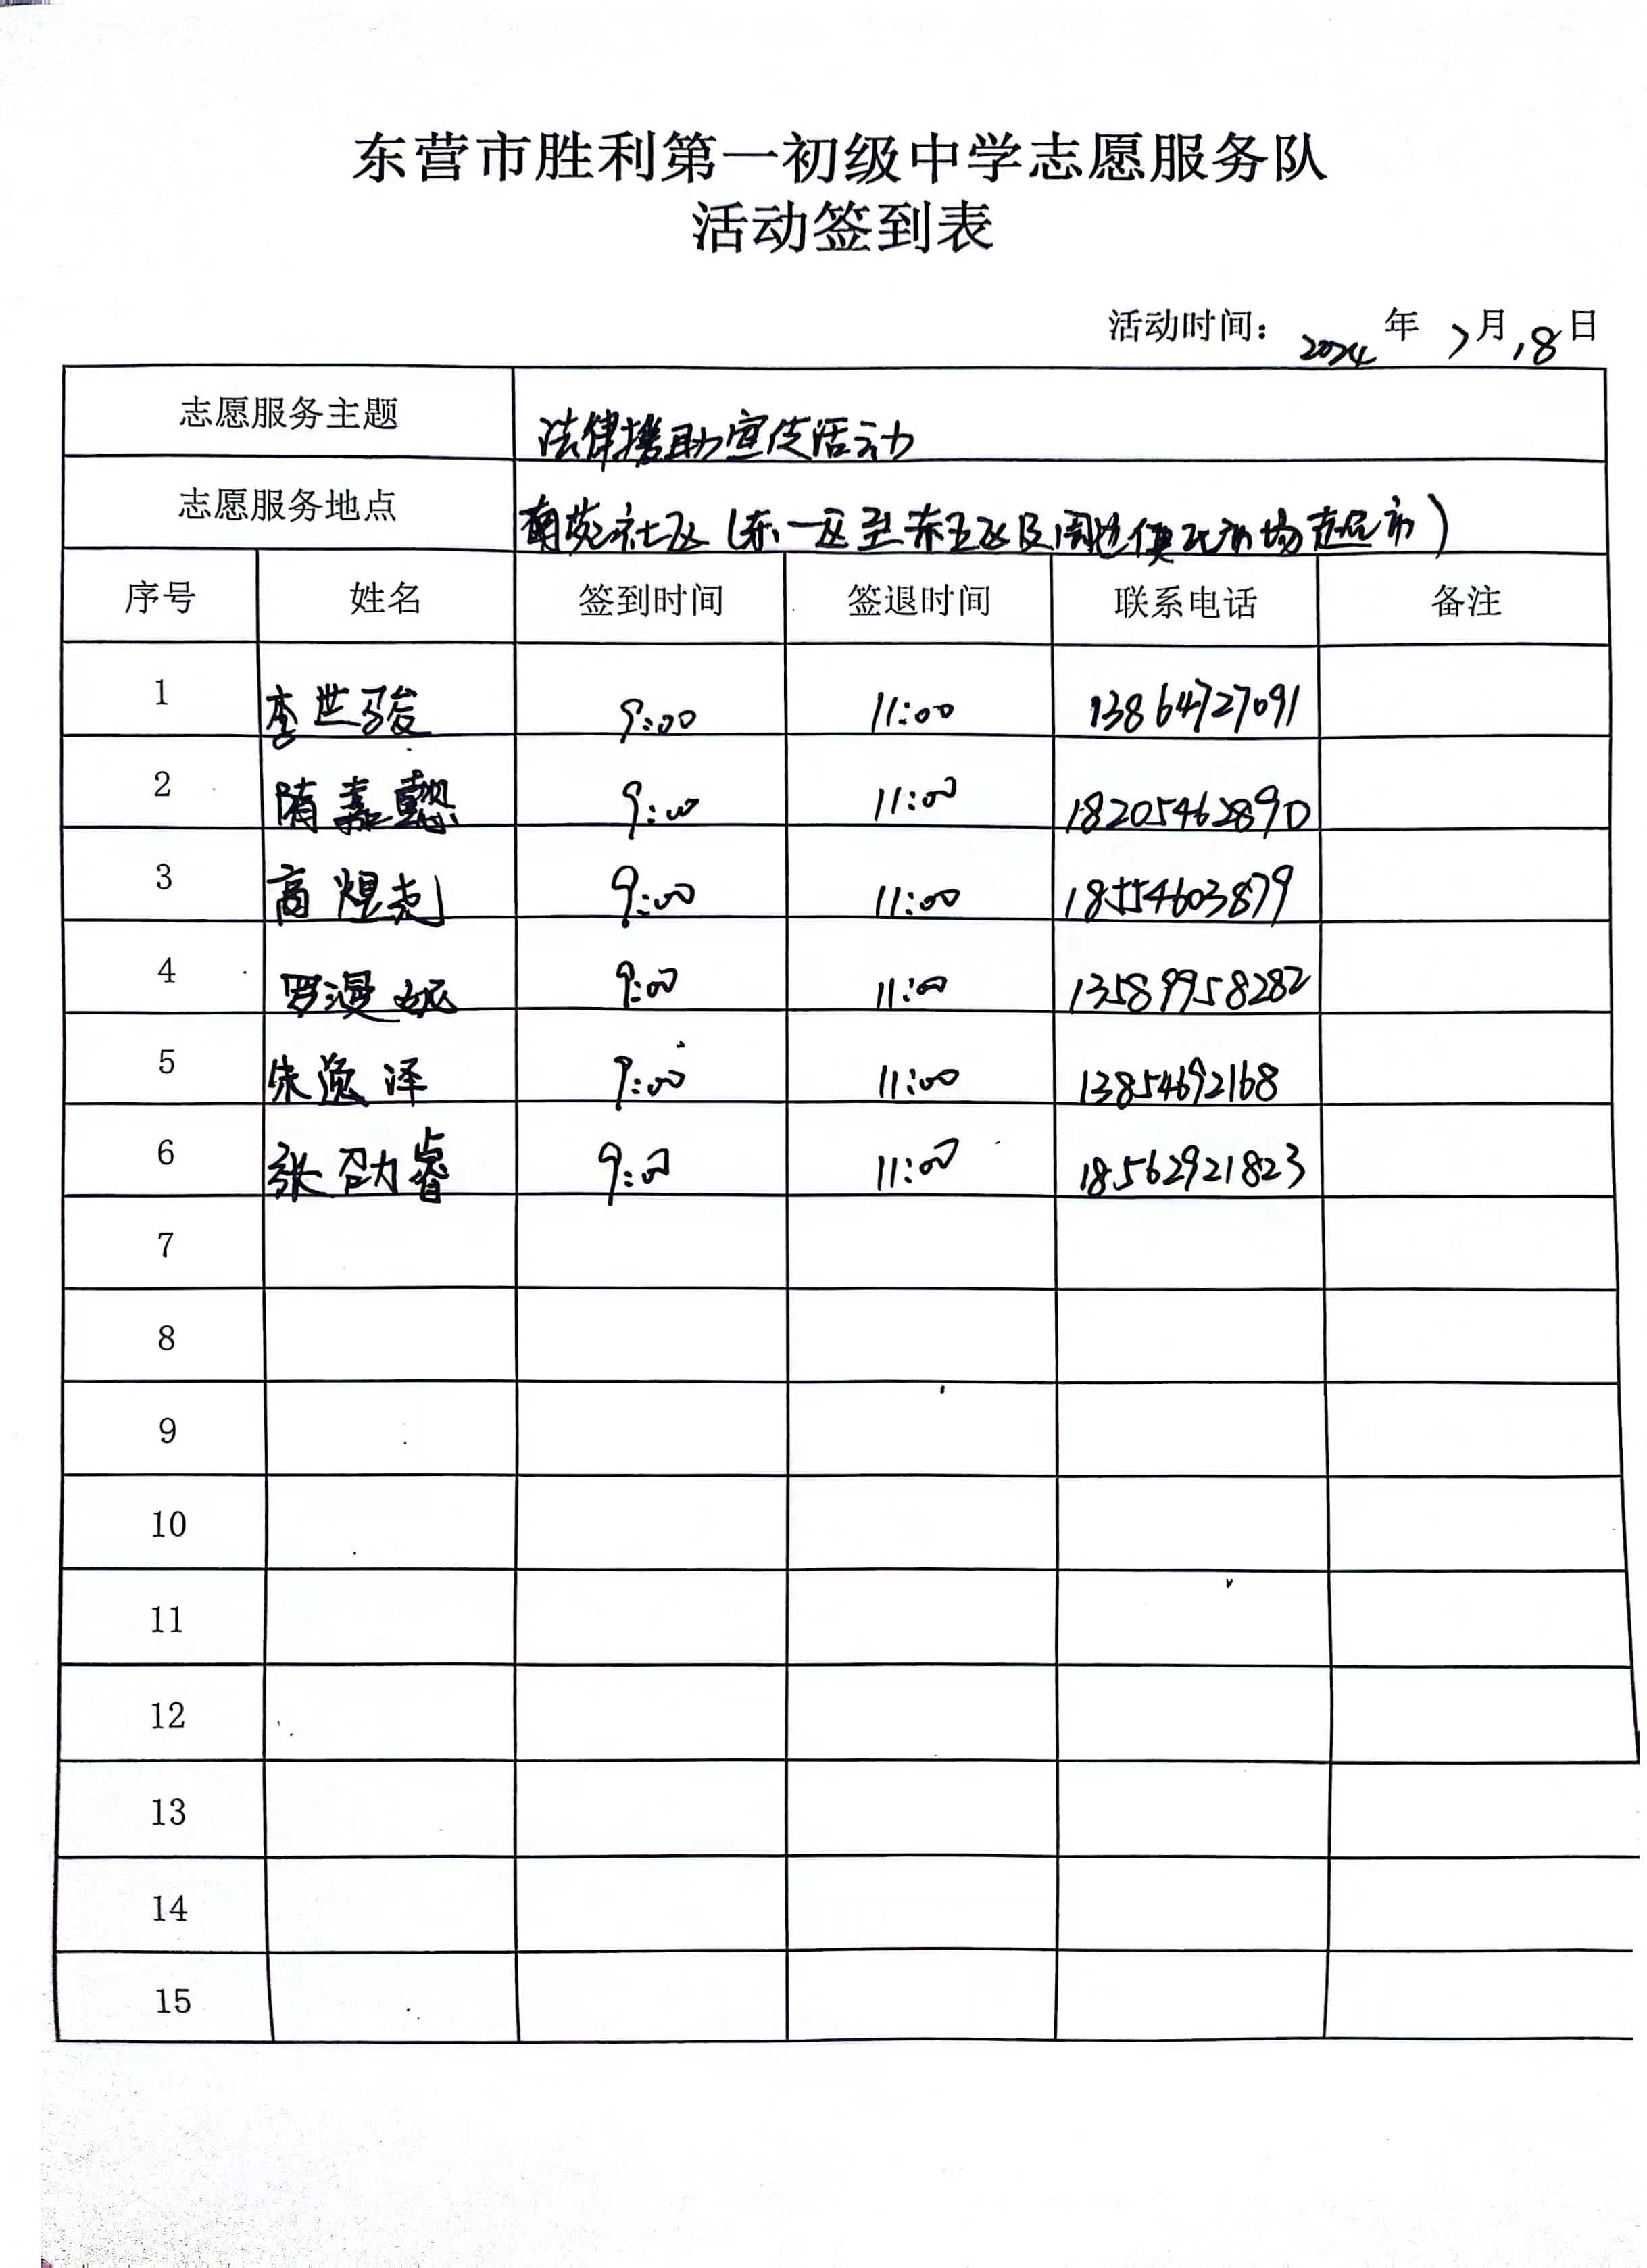 东营市胜利第一初级中学志愿服务队
活动签到表
活动时间: 2024 年 7月 18日
志愿服务主题 法律援助宣传活动
志愿服务地点 南苑社区(东一区至东五区及周边便民市场超市)
序号 姓名 签到时间 签退时间 联系电话 备注
1 李世骏 9:00 11:00 13864727091
2 隋嘉懿 9:00 11:00 18205462890
3 高煜尧 9:00 11:00 18554603879
4 罗漫妮 9:00 11:00 13589958282
5 朱逸泽 9:00 11:00 13854692168
6 张劭睿 9:00 11:00 18562921823
7
8
9
10
11
12
13
14
15